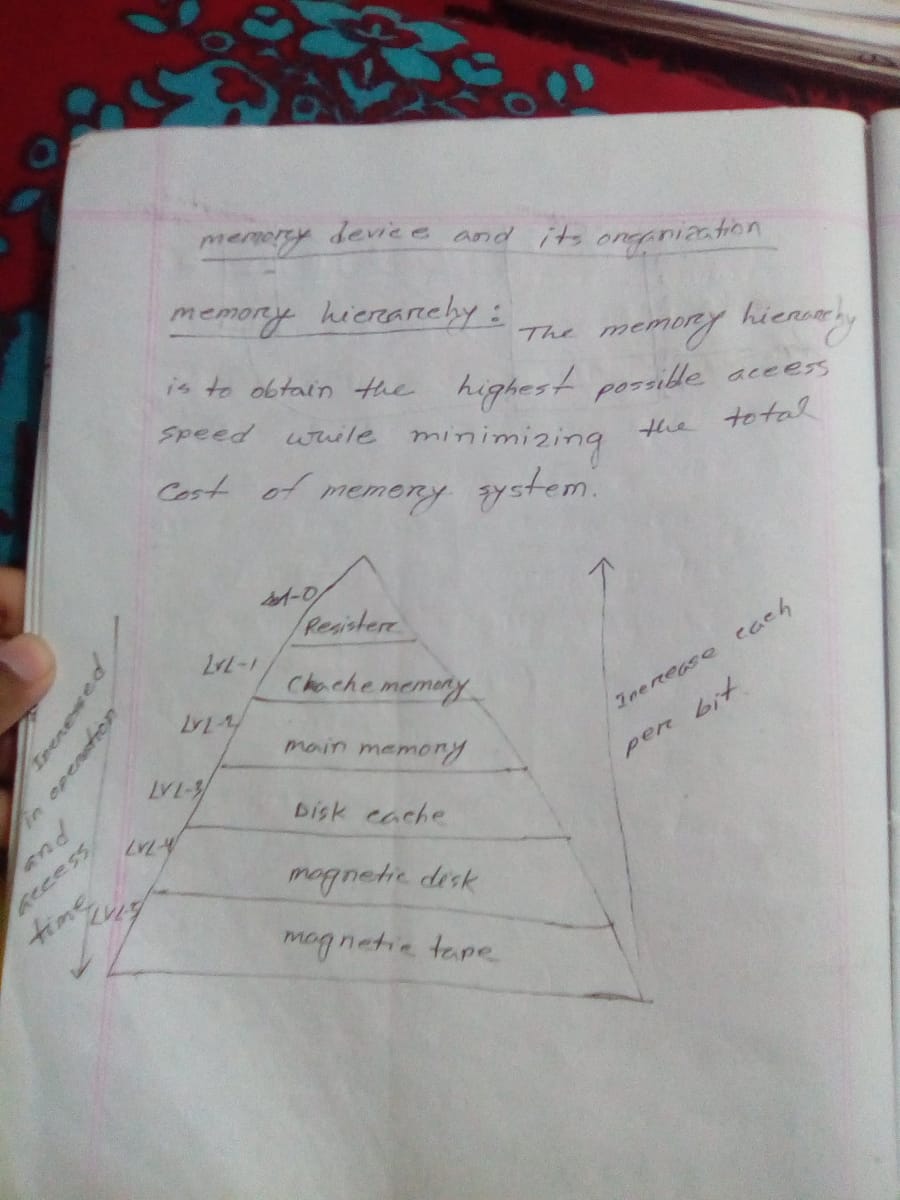 memory device and its organization
memory hierarchy:
The memory hierarchy
is to obtain the highest possible access
speed while minimizing the total
Cost of memory system.
LVL-0
Resister
LVL-1
Chache memory
LVL-2
main memory
LVL-3
Disk cache
LVL-4
magnetic disk
LVL-5
magnetic tape
Increased
in operation
and
access
time
Increase each
per bit